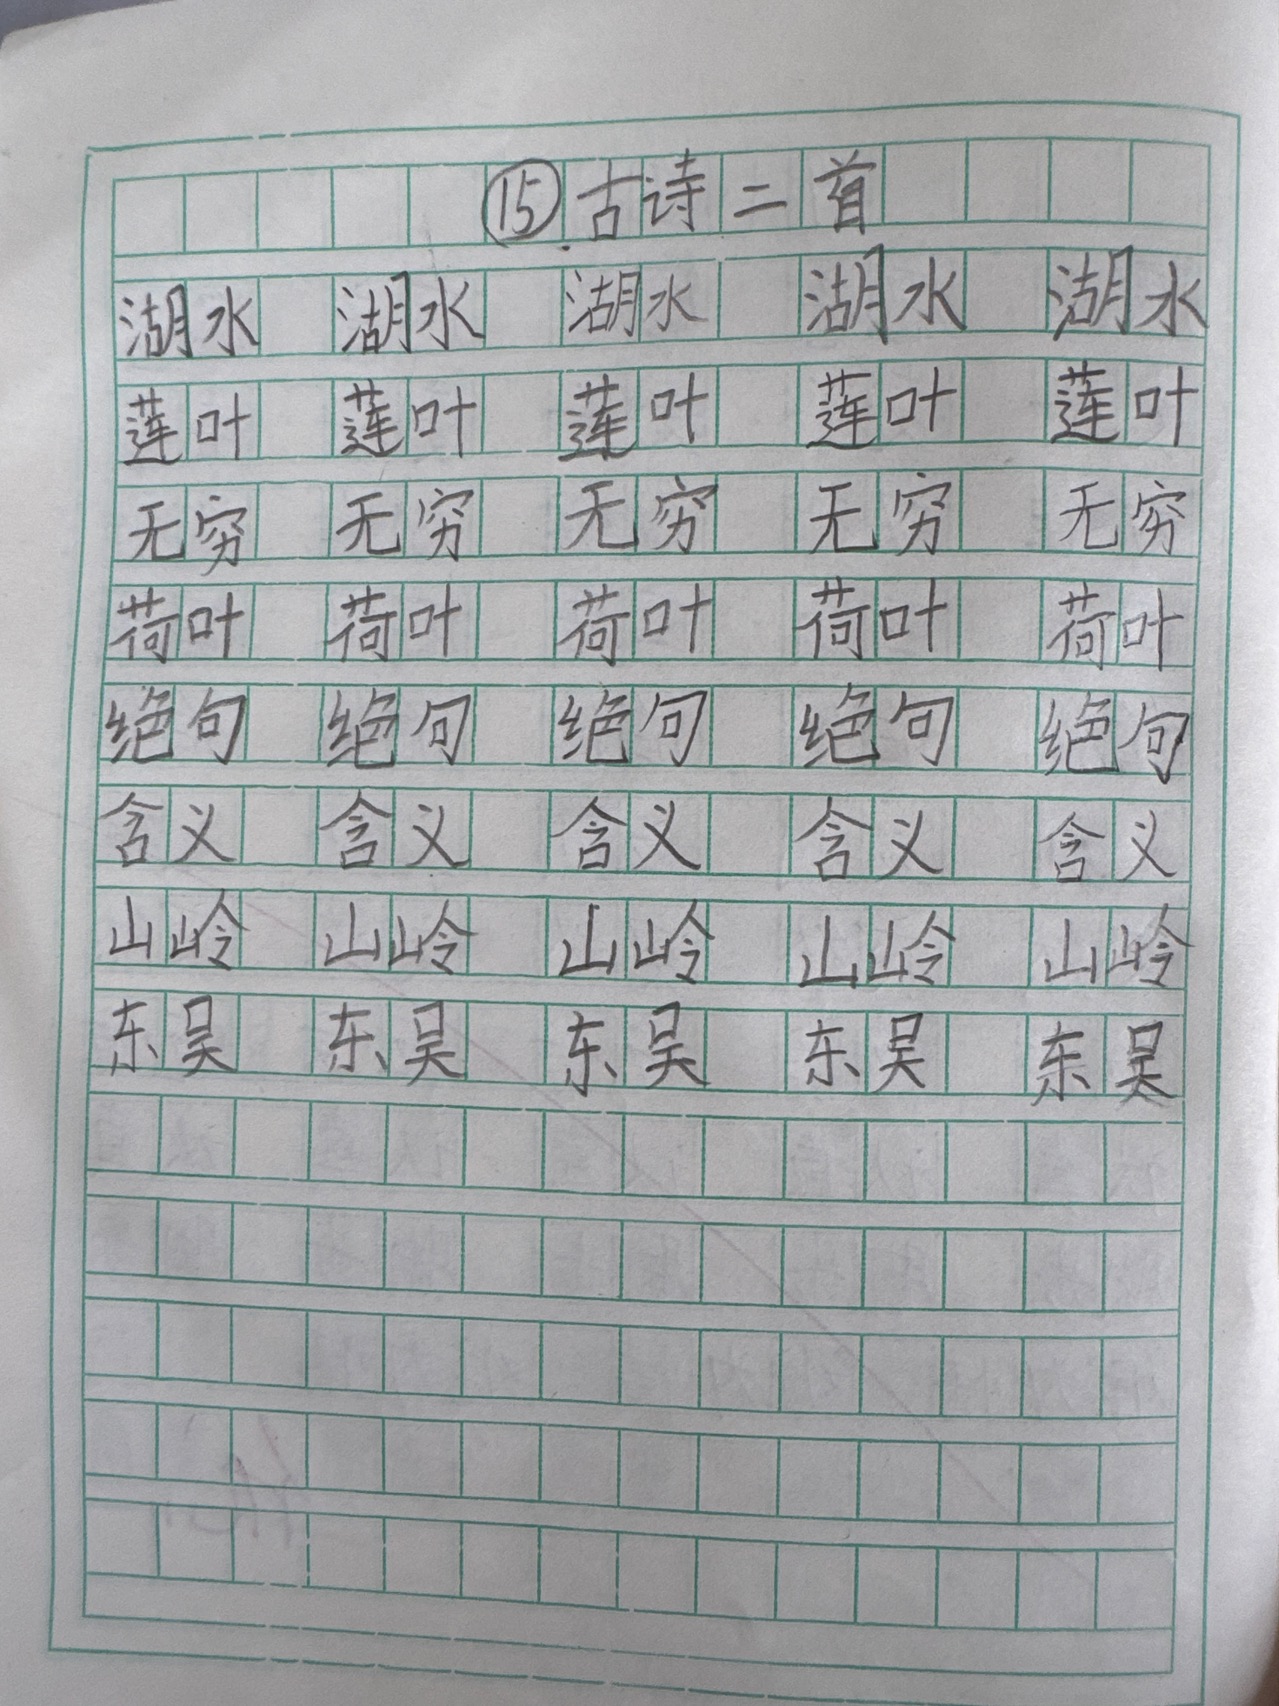 ⑮古诗二首
湖水 湖水 湖水 湖水 湖水
莲叶 莲叶 莲叶 莲叶 莲叶
无穷 无穷 无穷 无穷 无穷
荷叶 荷叶 荷叶 荷叶 荷叶
绝句 绝句 绝句 绝句 绝句
含义 含义 含义 含义 含义
山岭 山岭 山岭 山岭 山岭
东吴 东吴 东吴 东吴 东吴